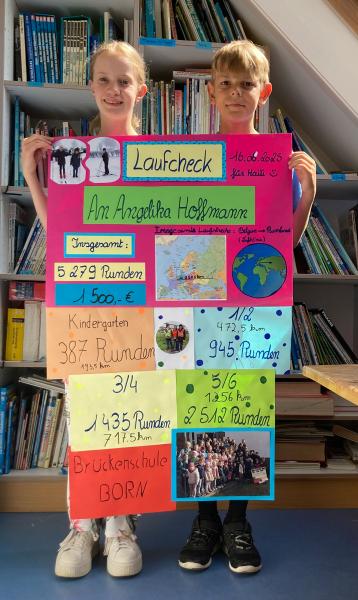 Laufcheck
16.06.2025
für Haiti
An Angelika Hoffmann
Insgesamt:
5 279 Runden
1 500,-€
Kindergarten
387 Runden
193,5 km
1/2
472,5 km
945 Runden
3/4
1435 Runden
717,5 km
5/6
1256 km
2 512 Runden
Brückenschule
BORN